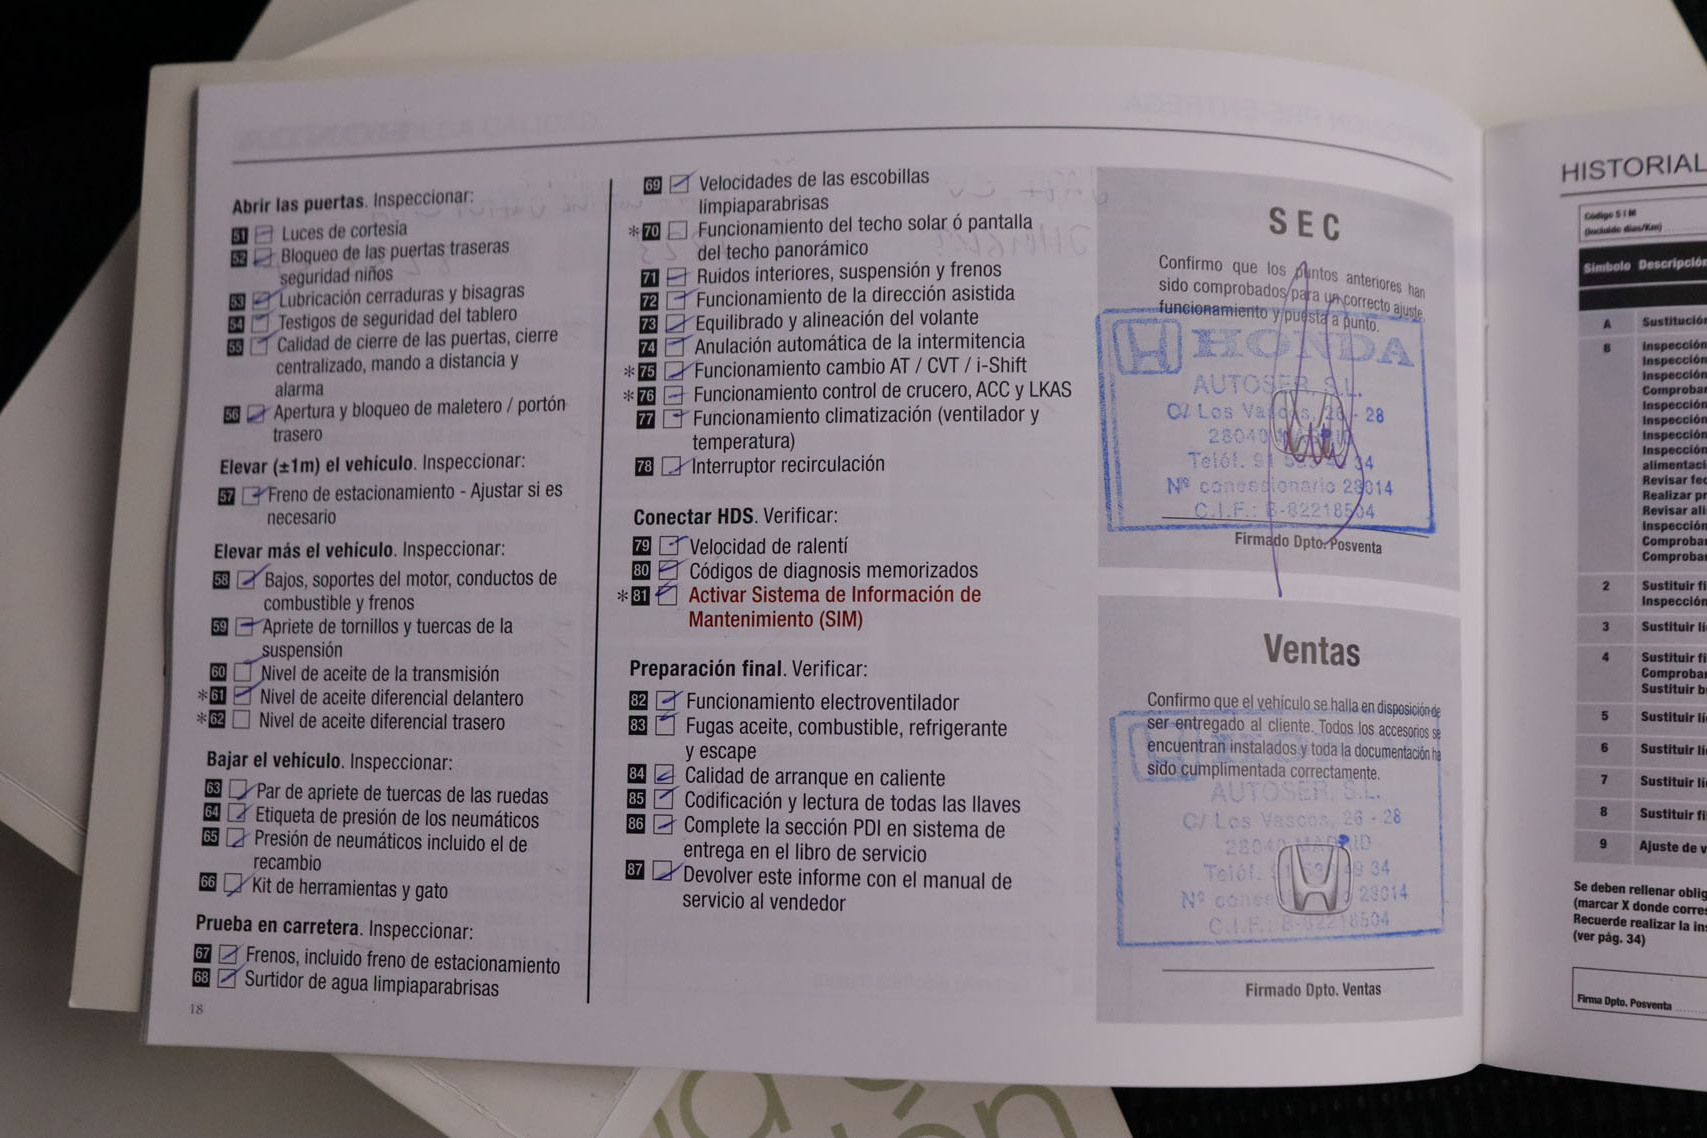 Abrir las puertas. Inspeccionar:
51 Luces de cortesía
52 Bloqueo de las puertas traseras
seguridad niños
53 Lubricación cerraduras y bisagras
54 Testigos de seguridad del tablero
55 Calidad de cierre de las puertas, cierre
centralizado, mando a distancia y
alarma
56 Apertura y bloqueo de maletero / portón
trasero
Elevar (±1m) el vehículo. Inspeccionar:
57 Freno de estacionamiento - Ajustar si es
necesario
Elevar más el vehículo. Inspeccionar:
58 Bajos, soportes del motor, conductos de
combustible y frenos
59 Apriete de tornillos y tuercas de la
suspensión
60 Nivel de aceite de la transmisión
*61 Nivel de aceite diferencial delantero
*62 Nivel de aceite diferencial trasero
Bajar el vehículo. Inspeccionar:
63 Par de apriete de tuercas de las ruedas
64 Etiqueta de presión de los neumáticos
65 Presión de neumáticos incluido el de
recambio
66 Kit de herramientas y gato
Prueba en carretera. Inspeccionar:
67 Frenos, incluido freno de estacionamiento
68 Surtidor de agua limpiaparabrisas
18
69 Velocidades de las escobillas
limpiaparabrisas
*70 Funcionamiento del techo solar ó pantalla
del techo panorámico
71 Ruidos interiores, suspensión y frenos
72 Funcionamiento de la dirección asistida
73 Equilibrado y alineación del volante
74 Anulación automática de la intermitencia
*75 Funcionamiento cambio AT / CVT / i-Shift
*76 Funcionamiento control de crucero, ACC y LKAS
77 Funcionamiento climatización (ventilador y
temperatura)
78 Interruptor recirculación
Conectar HDS. Verificar:
79 Velocidad de ralentí
80 Códigos de diagnosis memorizados
*81 Activar Sistema de Información de
Mantenimiento (SIM)
Preparación final. Verificar:
82 Funcionamiento electroventilador
83 Fugas aceite, combustible, refrigerante
y escape
84 Calidad de arranque en caliente
85 Codificación y lectura de todas las llaves
86 Complete la sección PDI en sistema de
entrega en el libro de servicio
87 Devolver este informe con el manual de
servicio al vendedor
SEC
Confirmo que los puntos anteriores han
sido comprobados para un correcto ajuste,
funcionamiento y puesta a punto.
HONDA
AUTOSER, S.L.
C/ Los Vascos, 26 - 28
28040 MADRID
Teléf. 91 34
Nº concesionario 28014
C.I.F.: B-82218504
Firmado Dpto. Posventa
Ventas
Confirmo que el vehículo se halla en disposición de
ser entregado al cliente. Todos los accesorios se
encuentran instalados y toda la documentación ha
sido cumplimentada correctamente.
HONDA
AUTOSER, S.L.
C/ Los Vascos, 26 - 28
28040 MADRID
Teléf. 34
Nº 28014
C.I.F.: B-82218504
Firmado Dpto. Ventas
HISTORIAL
Código S I M
(incluido días/Km)
Símbolo Descripción
A Sustitución
B Inspección
Inspección
Inspección
Comprobar
Inspección
Inspección
Inspección
Inspección
alimentaci
Revisar fec
Realizar pr
Revisar ali
Inspección
Comprobar
Comprobar
2 Sustituir fi
Inspección
3 Sustituir lí
4 Sustituir fi
Comprobar
Sustituir b
5 Sustituir lí
6 Sustituir lí
7 Sustituir lí
8 Sustituir fi
9 Ajuste de v
Se deben rellenar oblig
(marcar X donde corres
Recuerde realizar la ins
(ver pág. 34)
Firma Dpto. Posventa